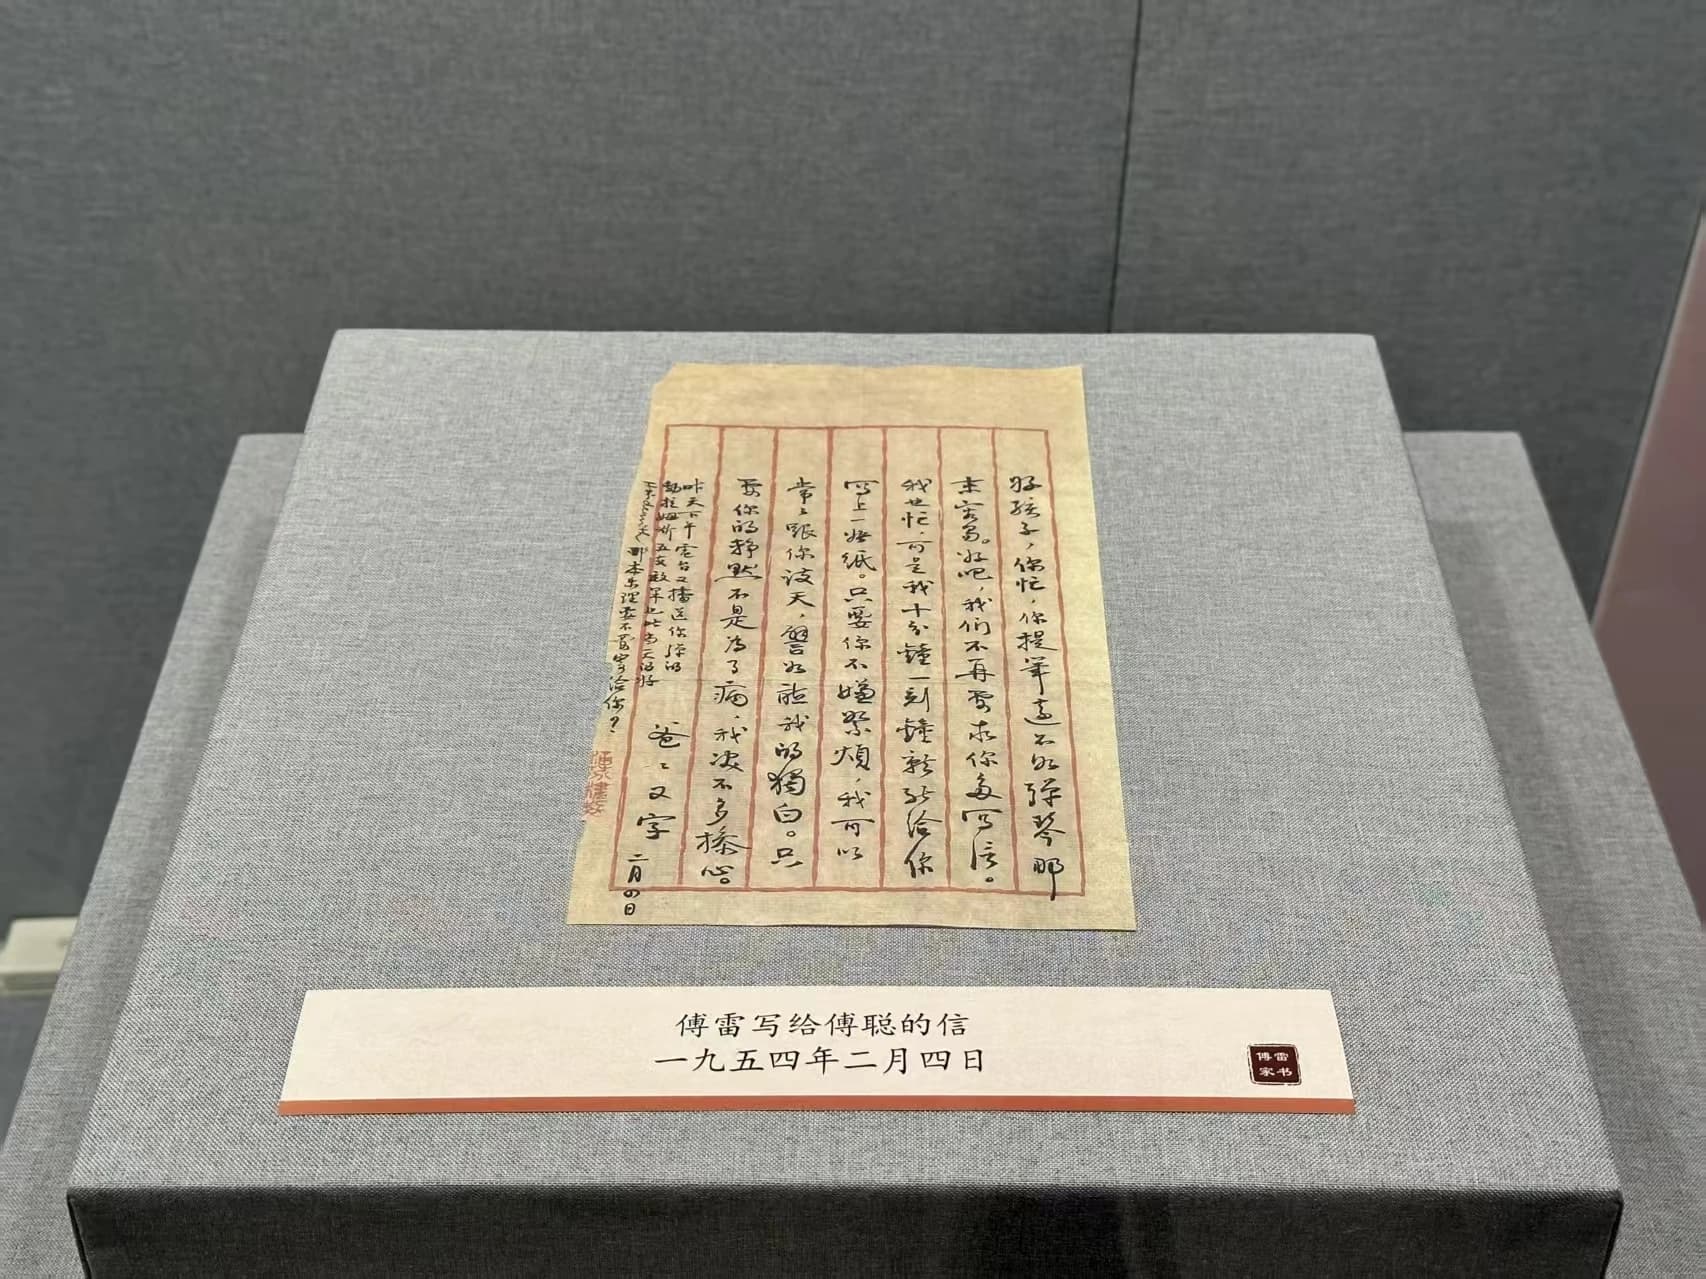 好孩子,你忙,你提筆遠不如彈琴那
末容易。好吧,我们不再要求你多写信。
我也忙,可是我十分鐘一刻鐘就能给你
写上一张紙。只要你不嫌絮煩,我可以
常常跟你谈天,譬如聽我的獨白。只
要你的静默不是為了病,我决不多操心。
昨天下午電台又播送你彈的
那本樂理要不要寄给你?
爸爸又字
二月四日
傅雷写给傅聪的信
一九五四年二月四日
傅雷
家书